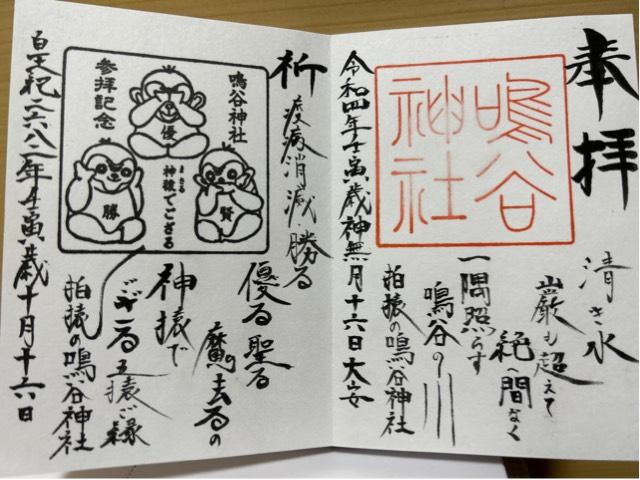 奉拝
鳴谷
神社
清き水
山巌も超えて
絶へ間なく
一隅照らす
鳴谷の川
令和四年壬寅歳神無月十六日大安
拍猿の鳴谷神社
祈
疫病消滅・勝る
優る聖る
魔の去るの
神猿で
ござる五猿ご縁
拍猿の鳴谷神社
鳴谷神社
参拝記念
優
勝
賢
神猿でござる
まさる
皇紀二六八二年壬寅歳十月十六日